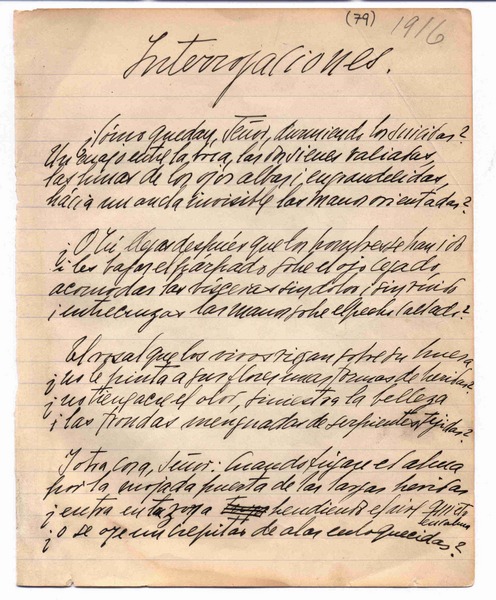 (79) 1916
Interrogaciones.
¿Cómo quedan, Señor, durmiendo los suicidas?
Un cuajo entre la boca, las dos sienes vaciadas,
las lunas de los ojos albas i engrandecidas,
hacia un ancla invisible las manos orientadas?
¿O Tú llegas después que los hombres se han ido
i les bajas el párpado sobre el ojo cegado,
acomodas las vísceras sin dolor i sin ruido
i entrecruzas las manos sobre el pecho callado?
El rosal que los vivos rigan sobre su huesa
¿no le pinta a sus flores unas formas de heridas?
¿no tiene acre el olor, siniestra la belleza
i las frondas menguadas de serpientes tejidas?
I otra cosa, Señor: Cuando fúgase el alma
por la mojada puerta de las largas heridas
¿entra en tu zona hendiendo el aire quieto
en calma
¿o se oye un crepitar de alas enloquecidas?